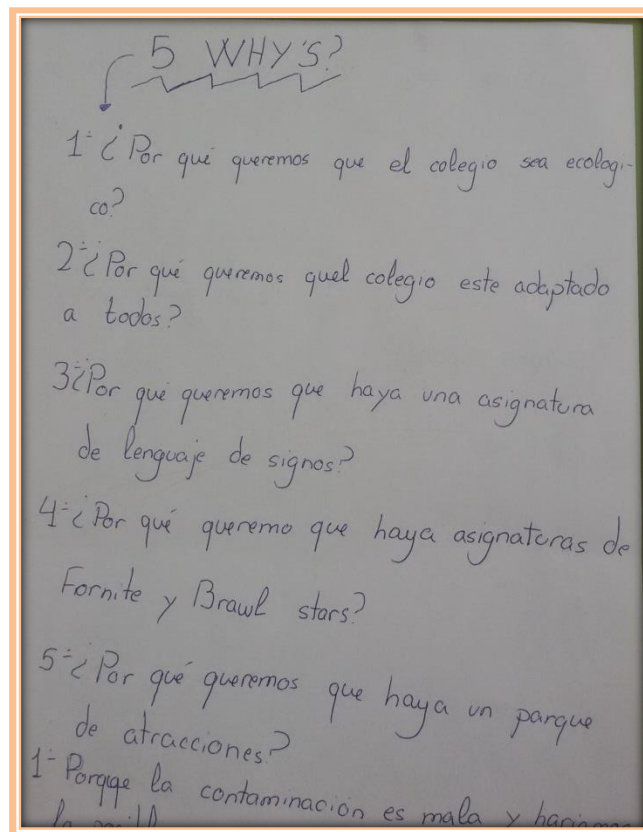 5 WHY'S?
1-¿Por qué queremos que el colegio sea ecologi-
co?
2-¿Por qué queremos quel colegio este adaptado
a todos?
3-¿Por qué queremos que haya una asignatura
de lenguaje de signos?
4-¿Por qué queremo que haya asignaturas de
Fornite y Brawl stars?
5-¿Por qué queremos que haya un parque
de atracciones?
1- Porqqe la contaminación es mala y
la